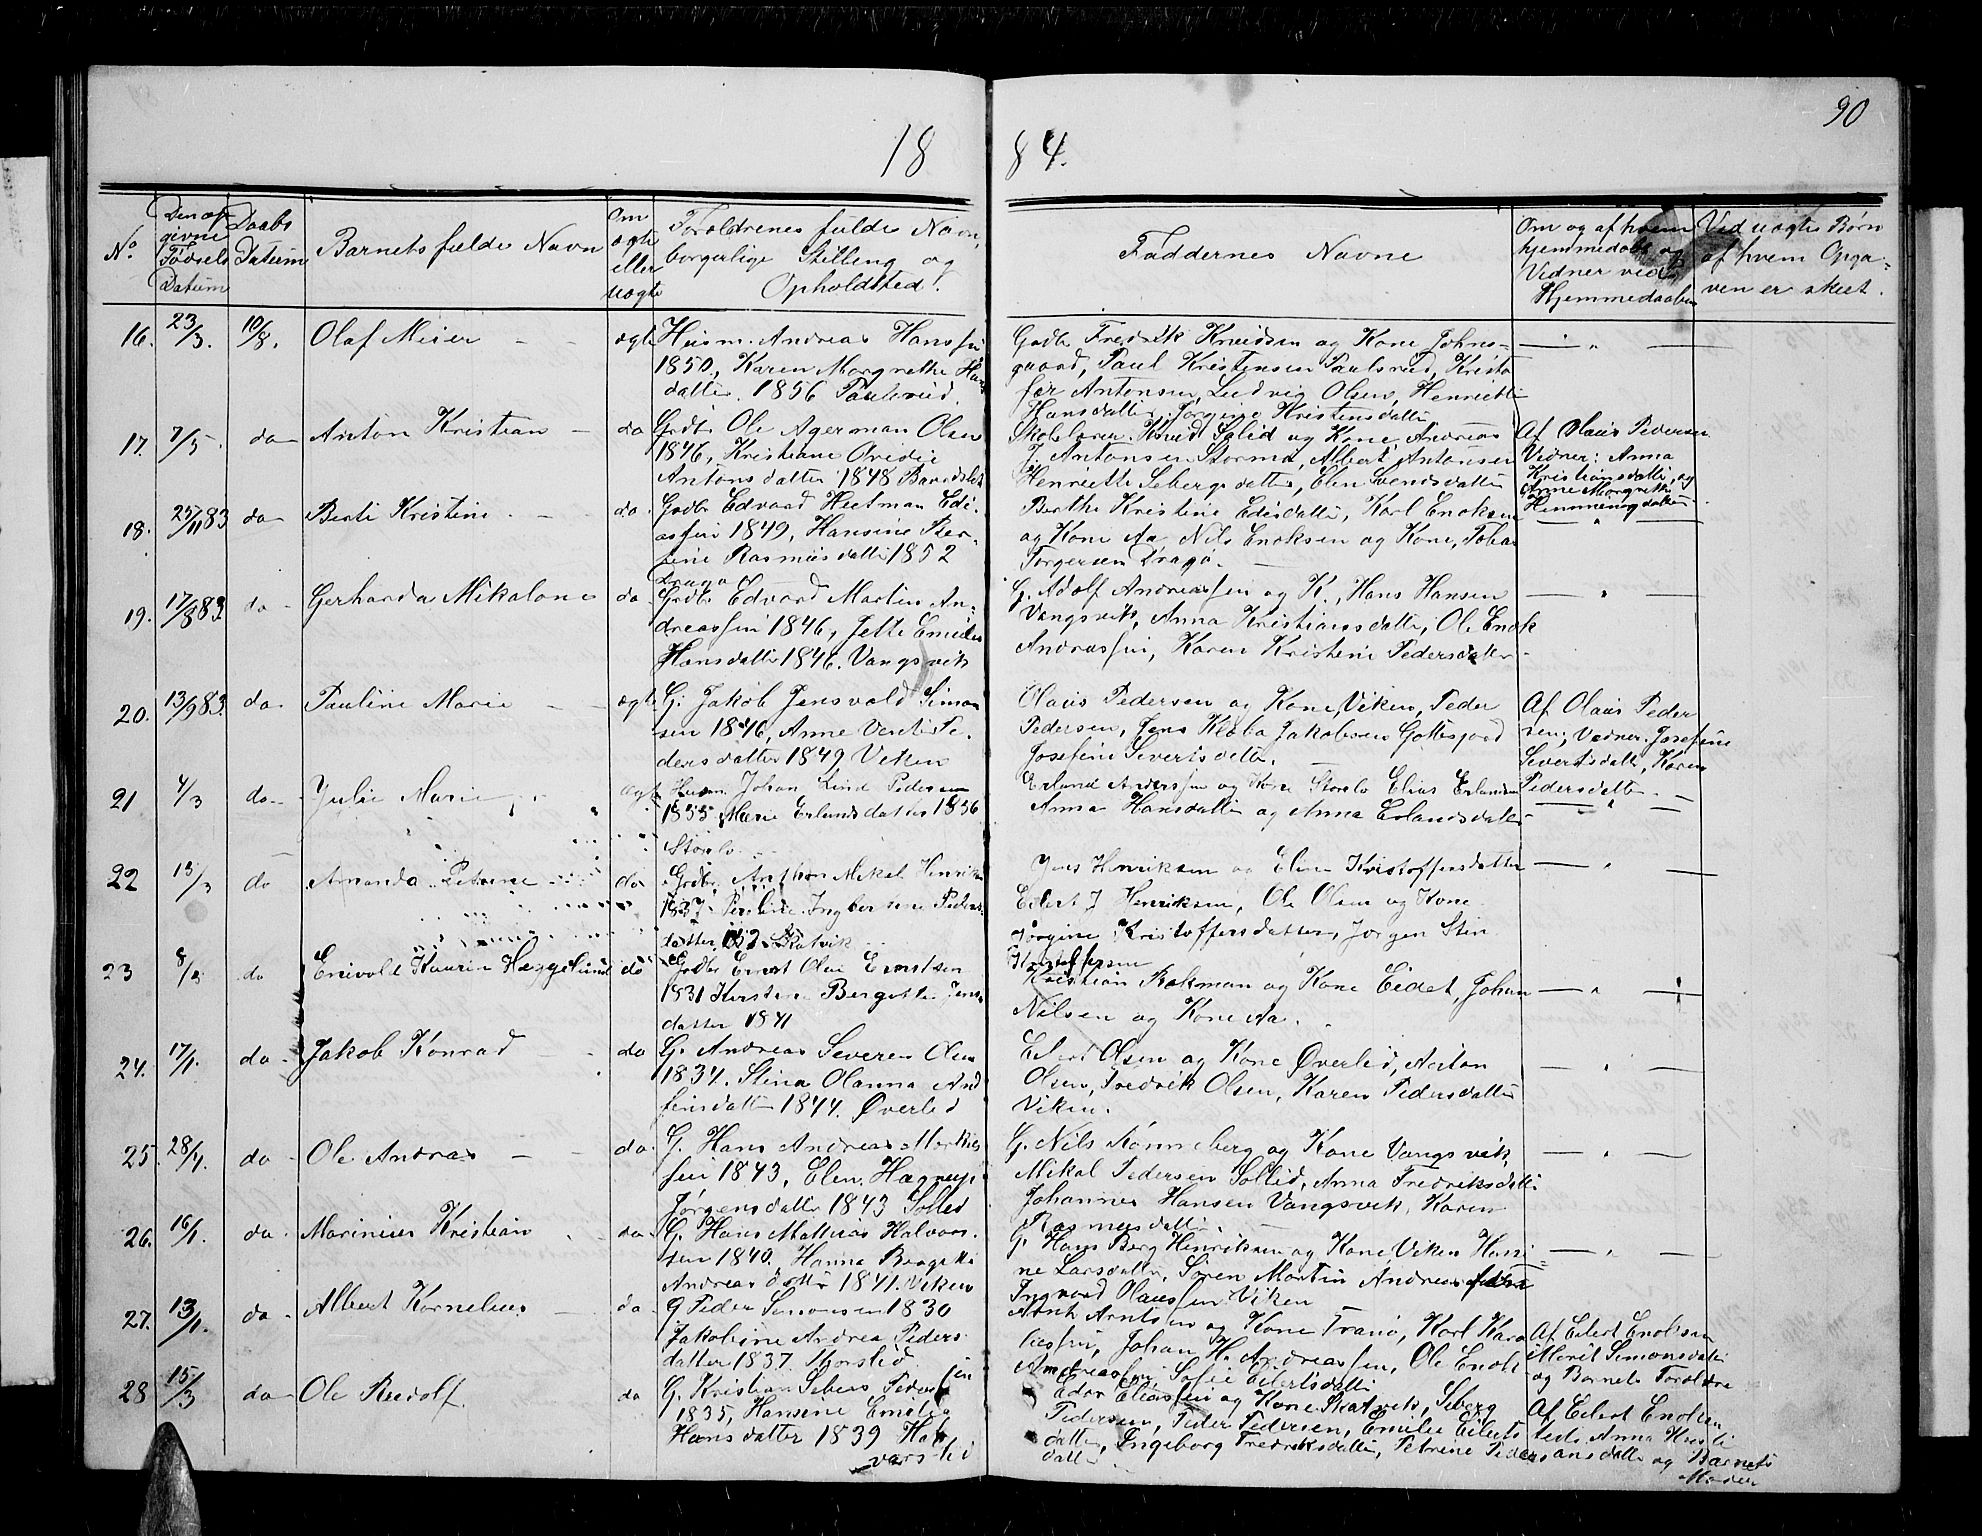 90
18 84.
No
Den op
givne
Fødsels
Datum
Daabs
Datum
Barnets fulde Navn
Om
ægte
eller
uægte
Forældrenes fulde Navn,
borgerlige Stilling og
Opholdsted.
Faddernes Navne
Om og af hvem
hjemmedøbt og
Vidner ved
Hjemmedaaben
Ved uægte Børn
af hvem Opga-
ven er skeet.
16. 23/3. 10/8. Olaf Meier ægte
Husm. Andreas Hanssen
1850, Karen Margrethe Hans
datter. 1856 Paulsrud.
Gdbr Fredrik Knudsen og Kone Johns-
gaard, Paul Kristensen Paulsrud, Kristo
fer Antonsen, Ludvig Olsen, Henriette
Hansdatter, Jørgine Kristensdatter
17. 7/5. do Anton Kristian do
Gdbr Ole Agerman Olsen
1846, Kristiane Ovedie
Antonsdatter 1848
Skolelærer Knud Solid og Kone, Andreas
J. Antonsen Stormo, Albert Antonsen
Henriette Sebergsdatter, Elen Svendsdatter
Af Olaus Pedersen
Vidner: Anna
Kristiansdatter, og
Anne Margrethe
Hemmingsdatter
18. 25/11 83 do Berti Kristine do.
Gdbr Edvard Heitman Edi-
assen 1849, Hansine Ber-
tine Rasmusdatter 1852
Dragø
Berthe Kristine Edisdatter, Karl Enoksen
og Kone Aa Nils Enoksen og Kone, Tobias
Torgersen Dragø.
19. 17/8 83. do Gerharda Mikalone do.
Gdbr Edvard Martin An-
dreassen 1846, Jette Emilie
Hansdatter 1846. Vangsvik
G. Adolf Andreassen og K., Hans Hansen
Vangsvik, Anna Kristiansdatter, Ole Enok
Andrassen, Karen Kristine Pedersdatter
20. 13/9 83. do Pauline Marie ægte
G. Jakob Jensvold Simon
sen 1846, Anne Pe-
dersdatter 1849 Viken
Olaus Pedersen og Kone, Viken, Peder
Pedersen, Jens Jakobsen Gottesjord
Josefine Sivertsdatter.
Af Olaus Peder
sen; Vidner: Josefine
Sivertsdatter, Karen
Pedersdatter
21 4/3 do Julie Marie ægte
Husm. Johan Lind Pedersen
1855 Marie Erlandsdatter 1856
Storslo
Erland Anderssen og Kone Storslo Elias Erlandsen
Anna Hansdatter og Anna Erlandsdatter
22 13/3 do Amanda Petrine do
Gdbr. Anthon Mikal Henriks
1837 Perline Ingber Peders
datter, Skatvik
Jens Henriksen og Eline Kristoffersdatter
Eilert J Henriksen, Ole Olsen og Kone
Jørgine Kristoffersdatter, Jørgen Stin
Kristoffersen
23 8/3 do Enivolt Kaurin Hæggelund do
Gdbr Ernst Olai Ernstsen
1831 Kirstine Bergitte Jens
datter 1841
Kristian Bokman og Kone Eidet, Johan
Nilsen og Kone Aa.
24. 17/1. do Jakob Konrad do
G. Andreas Severen Olsen
1834. Stina Olanna And
sensdatter 1844. Øverlid
Eilert Olsen og Kone Øverlid, Anton
Olsen, Fredrik Olsen, Karen Pedersdatter
Viken.
25 28/1. do Ole Andreas do.
G. Hans Andreas Markus
sen 1843, Elen Hagnup
Jørgensdatter 1843 Sollid
G. Nils Kønneberg og Kone Vangsvik,
Mikal Pedersen Sollid, Anna Fredriksdatter
Johannes Hansen Vangsvik, Karen
Rasmusdatter.
26. 16/1. do Marinius Kristian do.
G. Hans Mathias Halvors-
sen 1840. Hanna Bragitte
Andreasdatter 1841. Viken
G. Hans Berg Henriksen og Kone Viken Hansi
ne Larsdatter, Søren Martin Andreassen
Ingvard Olaussen Viken
27. 13/1. do Albert Kornelius do.
G Peder Simonsen 1830
Jakobine Andrea Peders
datter 1837. Storslid
Arnt Arntsen og Kone Tranø, Karl Karo
liussen, Johan H. Andreassen, Ole Enok
Andreassen, Sofie Eilertsdatter
Af Eilert Enoksen
Merit Simonsdatter
og Barnets Forældre
28 15/3 do Ole Rudolf. do
G. Kristian Sebers Peders sen
1835, Hansine Emilie
Hansdatter 1839 Hal
varslid
Edor Eliassen og Kone Skatvik, Seberg
Pedersen, Peder Pedersen, Emilie Eilerts
datter, Ingeborg Fredriksdatter, Petrine Peders
datter
Af Eilert Enoksen
Anna
ansdatter og Barnets
Moder